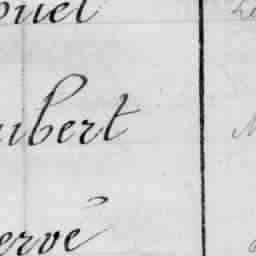 ouet
ubert
ervé